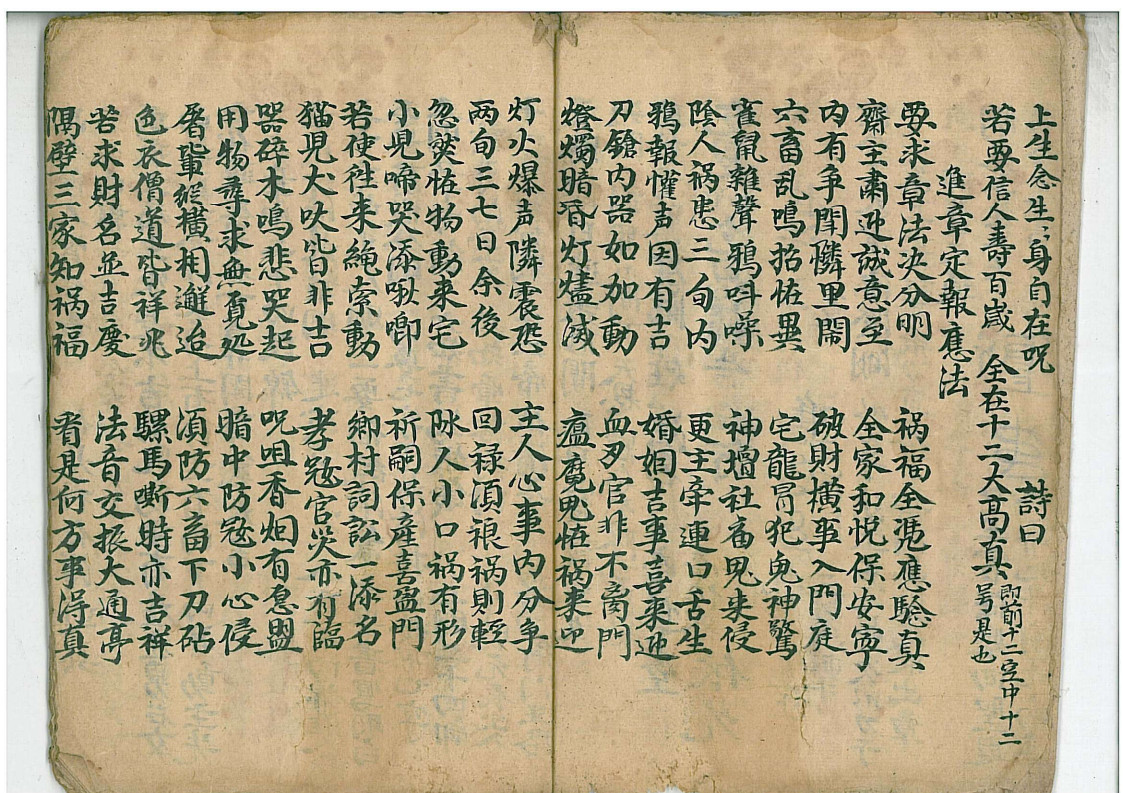 上生念生〻身自在呪
若要信人壽百歲　全在十二大高真　即前十二宮中十二号是也
進章定報應法　詩曰
要求章法决分明　祸福全凴應驗真
齋主肅迎誠意至　全家和悦保安寧
内有争閙憐里鬧　破財横事入門庭
六畜乱鳴招怪異　宅龍冐犯鬼神驚
雀鼠雜聲鴉呌噪　神壇社庙鬼来侵
陰人祸患三旬内　更主牵連口舌生
鴉報懽声因有吉　婚姻吉事喜来迎
刀鎗内器如加動　血刃官非不离門
燈燭暗昏灯燼滅　瘟魔鬼怪祸来迎
灯火爆声隣震恐　主人心事内分争
两旬三七日余後　回禄湏禳祸則輕
忽然怪物動来宅　陰人小口祸有形
小児啼哭添啾唧　祈嗣保産喜盈門
若使徃来繩索動　鄉村詞訟一添名
猫児犬吠皆非吉　孝冦官災亦有臨
器碎木鳴悲哭起　呪咀香烟有怠盟
用物尋求無覓処　暗中防冦小心侵
屠輩縱横相邂迨　湏防六畜下刀砧
色衣僧道皆祥兆　騾馬嘶時亦吉祥
若求財名並吉慶　法音交振大通亨
隅壁三家知祸福　看是何方事淂真